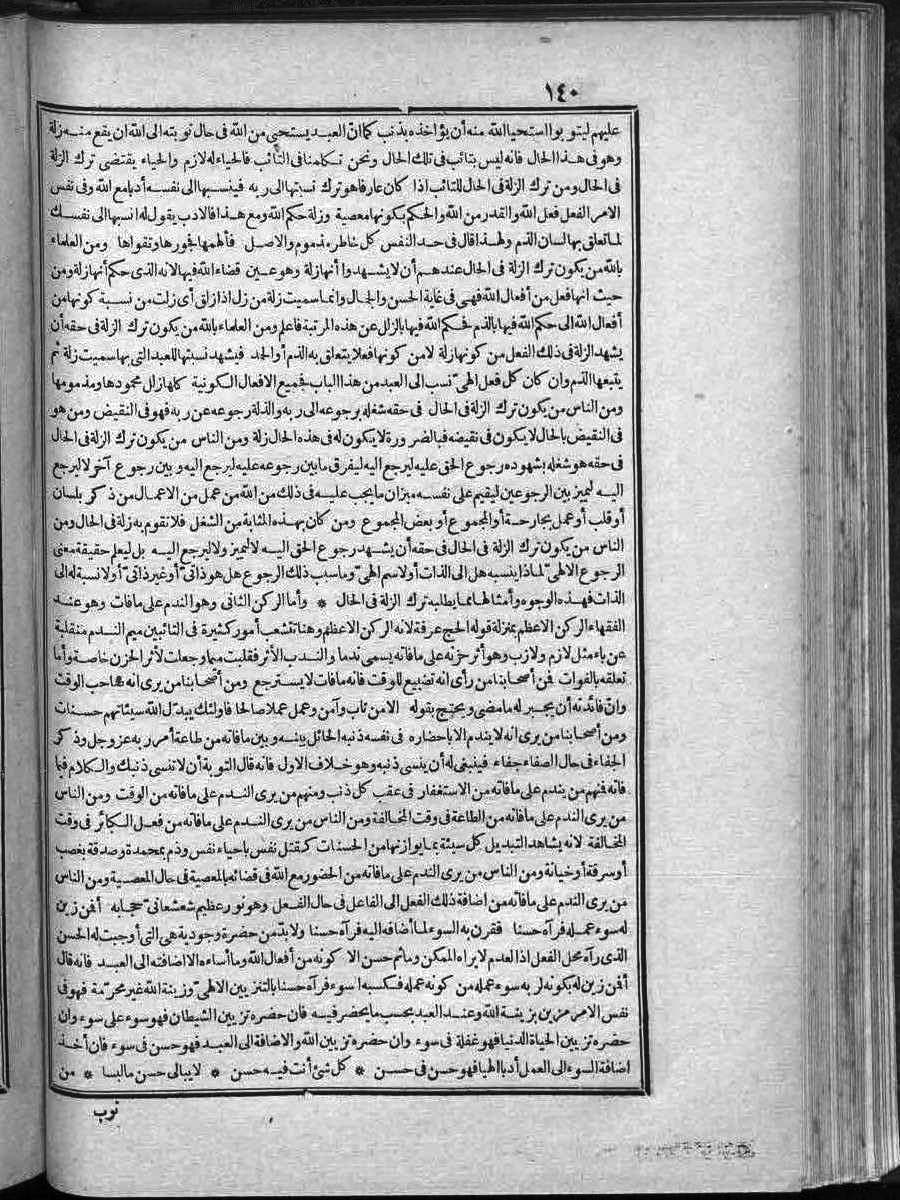 ١٤٠
عليهم ليتوبوا استحيا الله منه أن يؤاخذه بذنب كما انّ العبد يستحيى من الله فى حال توبته الى الله ان يقع منه زلة
وهو فى هذا الحال فانه ليس بتائب فى تلك الحال ونحن تكلمنا فى التائب فالحياء له لازم والحياء يقتضى ترك الزلة
فى الحال ومن ترك الزلة فى الحال للتائب اذا كان عارفا هو ترك نسبتها الى ربه فينسبها الى نفسه أدبا مع الله وفى نفس
الامر الفعل فعل الله والقدر من الله والحكم بكونها معصية وزلة حكم الله ومع هذا فالادب يقول له انسبها الى نفسك
لما تعلق بها لسان الذم ولهذا قال فى حد النفس كل خاطر مذموم والاصل فألهمها فجورها وتقواها ومن العلماء
بالله من يكون ترك الزلة فى الحال عندهم أن لا يشهدوا أنها زلة وهو عين قضاء الله فيها لانه الذى حكم أنها زلة ومن
حيث انها فعل من أفعال الله فهى فى غاية الحسن والجمال وانما سميت زلة من زل اذا زلق أى زلت من نسبة كونها من
أفعال الله الى حكم الله فيها بالذم فحكم الله فيها بالزلل عن هذه المرتبة فاعلم ومن العلماء بالله من يكون ترك الزلة فى حقه أن
يشهد الزلة فى ذلك الفعل من كونها زلة لا من كونها فعلا يتعلق به الذم أو الحمد فتشهد نسبتها للعبد التى بها سميت زلة ثم
يتبعها الذم وان كان كل فعل الهىّ نسب الى العبد من هذا الباب فجميع الافعال الكونية كلها زلل محمودها ومذمومها
ومن الناس من يكون ترك الزلة فى الحال فى حقه شغله برجوعه الى ربه والذلة رجوعه عن ربه فهو فى النقيض ومن هو
فى النقيض بالحال لا يكون فى نقيضه فبالضرورة لا يكون له فى هذه الحال زلة ومن الناس من يكون ترك الزلة فى الحال
فى حقه هو شغله بشهوده رجوع الحق عليه ليرجع اليه ليفرق ما بين رجوعه عليه ليرجع اليه وبين رجوع آخر لا ليرجع
اليه ليميز بين الرجوعين ليقيم على نفسه ميزان ما يجب عليه فى ذلك من الله من عمل من الاعمال من ذكر بلسان
أو قلب أو عمل بجارحة أو المجموع أو بعض المجموع ومن كان بهذه المثابة من الشغل فلا تقوم به زلة فى الحال ومن
الناس من يكون ترك الزلة فى الحال فى حقه أن يشهد رجوع الحق اليه لا ليميز ولا ليرجع اليه بل ليعلم حقيقة معنى
الرجوع الالهىّ لماذا ينسبه هل الى الذات أو لاسم الهىّ وما سبب ذلك الرجوع هل هو ذاتىّ أو غير ذاتىّ أو لا نسبة له الى
الذات فهذه الوجوه وأمثالها مما يطلبه ترك الزلة فى الحال * وأما الركن الثانى وهو الندم على ما فات وهو عند
الفقهاء الركن الاعظم بمنزلة قوله الحج عرفة لانه الركن الاعظم وهنا تتشعب أمور كثيرة فى التائبين ميم الندم منقلبة
عن باء مثل لازم ولازب وهو أثر حزنه على ما فاته يسمى ندما والندب الأثر فقلبت ميما وجعلت لأثر الحزن خاصة وأما
تعلقه بالفوات فمن أصحابنا من رأى انه تضييع للوقت فانه ما فات لا يسترجع ومن أصحابنا من يرى انه صاحب الوقت
وانّ فائدته أن يجبر له ما مضى ويحتج بقوله الا من تاب وآمن وعمل عملا صالحا فاولئك يبدّل الله سيئاتهم حسنات
ومن أصحابنا من يرى انه لا يندم الا باحضاره فى نفسه ذنبه الحائل بينه وبين ما فاته من طاعة أمر ربه عز وجل وذكر
الجفاء فى حال الصفاء جفاء فينبغى له أن ينسى ذنبه وهو خلاف الاول فانه قال التوبة أن لا تنسى ذنبك والكلام فيما
فاته فمنهم من يندم على ما فاته من الاستغفار فى عقب كل ذنب ومنهم من يرى الندم على ما فاته من الوقت ومن الناس
من يرى الندم على ما فاته من الطاعة فى وقت المخالفة ومن الناس من يرى الندم على ما فاته من فعل الكبائر فى وقت
المخالفة لانه يشاهد التبديل كل سيئة بما يوازنها من الحسنات كقتل نفس باحياء نفس وذم بمحمدة وصدقة بغصب
أو سرقة أو خيانة ومن الناس من يرى الندم على ما فاته من الحضور مع الله فى قضائه بالمعصية فى حال المعصية ومن الناس
من يرى الندم على ما فاته من اضافة ذلك الفعل الى الفاعل فى حال الفعل وهو نور عظيم شعشعانىّ حجابه أفمن زين
له سوء عمله فرآه حسنا فقرن به السوء لما أضافه اليه فرآه حسنا ولا بدّ من حضرة وجودية هى التى أوجبت له الحسن
الذى رآه محل الفعل اذ العدم لا يراه الممكن وما ثم حسن الا كونه من أفعال الله وما أساءه الا اضافته الى العبد فانه قال
أفمن زين له بكونه لربه سوء عمله من كونه عمله فكسبه اسوء فرآه حسنا بالتزيين الالهىّ وزينة الله غير محرّمة فهو فى
نفس الامر مزين بزينة الله وعند العبد بحسب ما يحضر فيه فان حضره تزيين الشيطان فهو سوء على سوء وان
حضره تزيين الحياة الدنيا فهو غفلة فى سوء وان حضره تزيين الله والاضافة الى العبد فهو حسن فى سوء فان أخذ
اضافة السوء الى العمل أدبا الهيا فهو حسن فى حسن * كل شئ أنت فيه حسن * لا يبالى حسن ما لبسا * من
ثوب